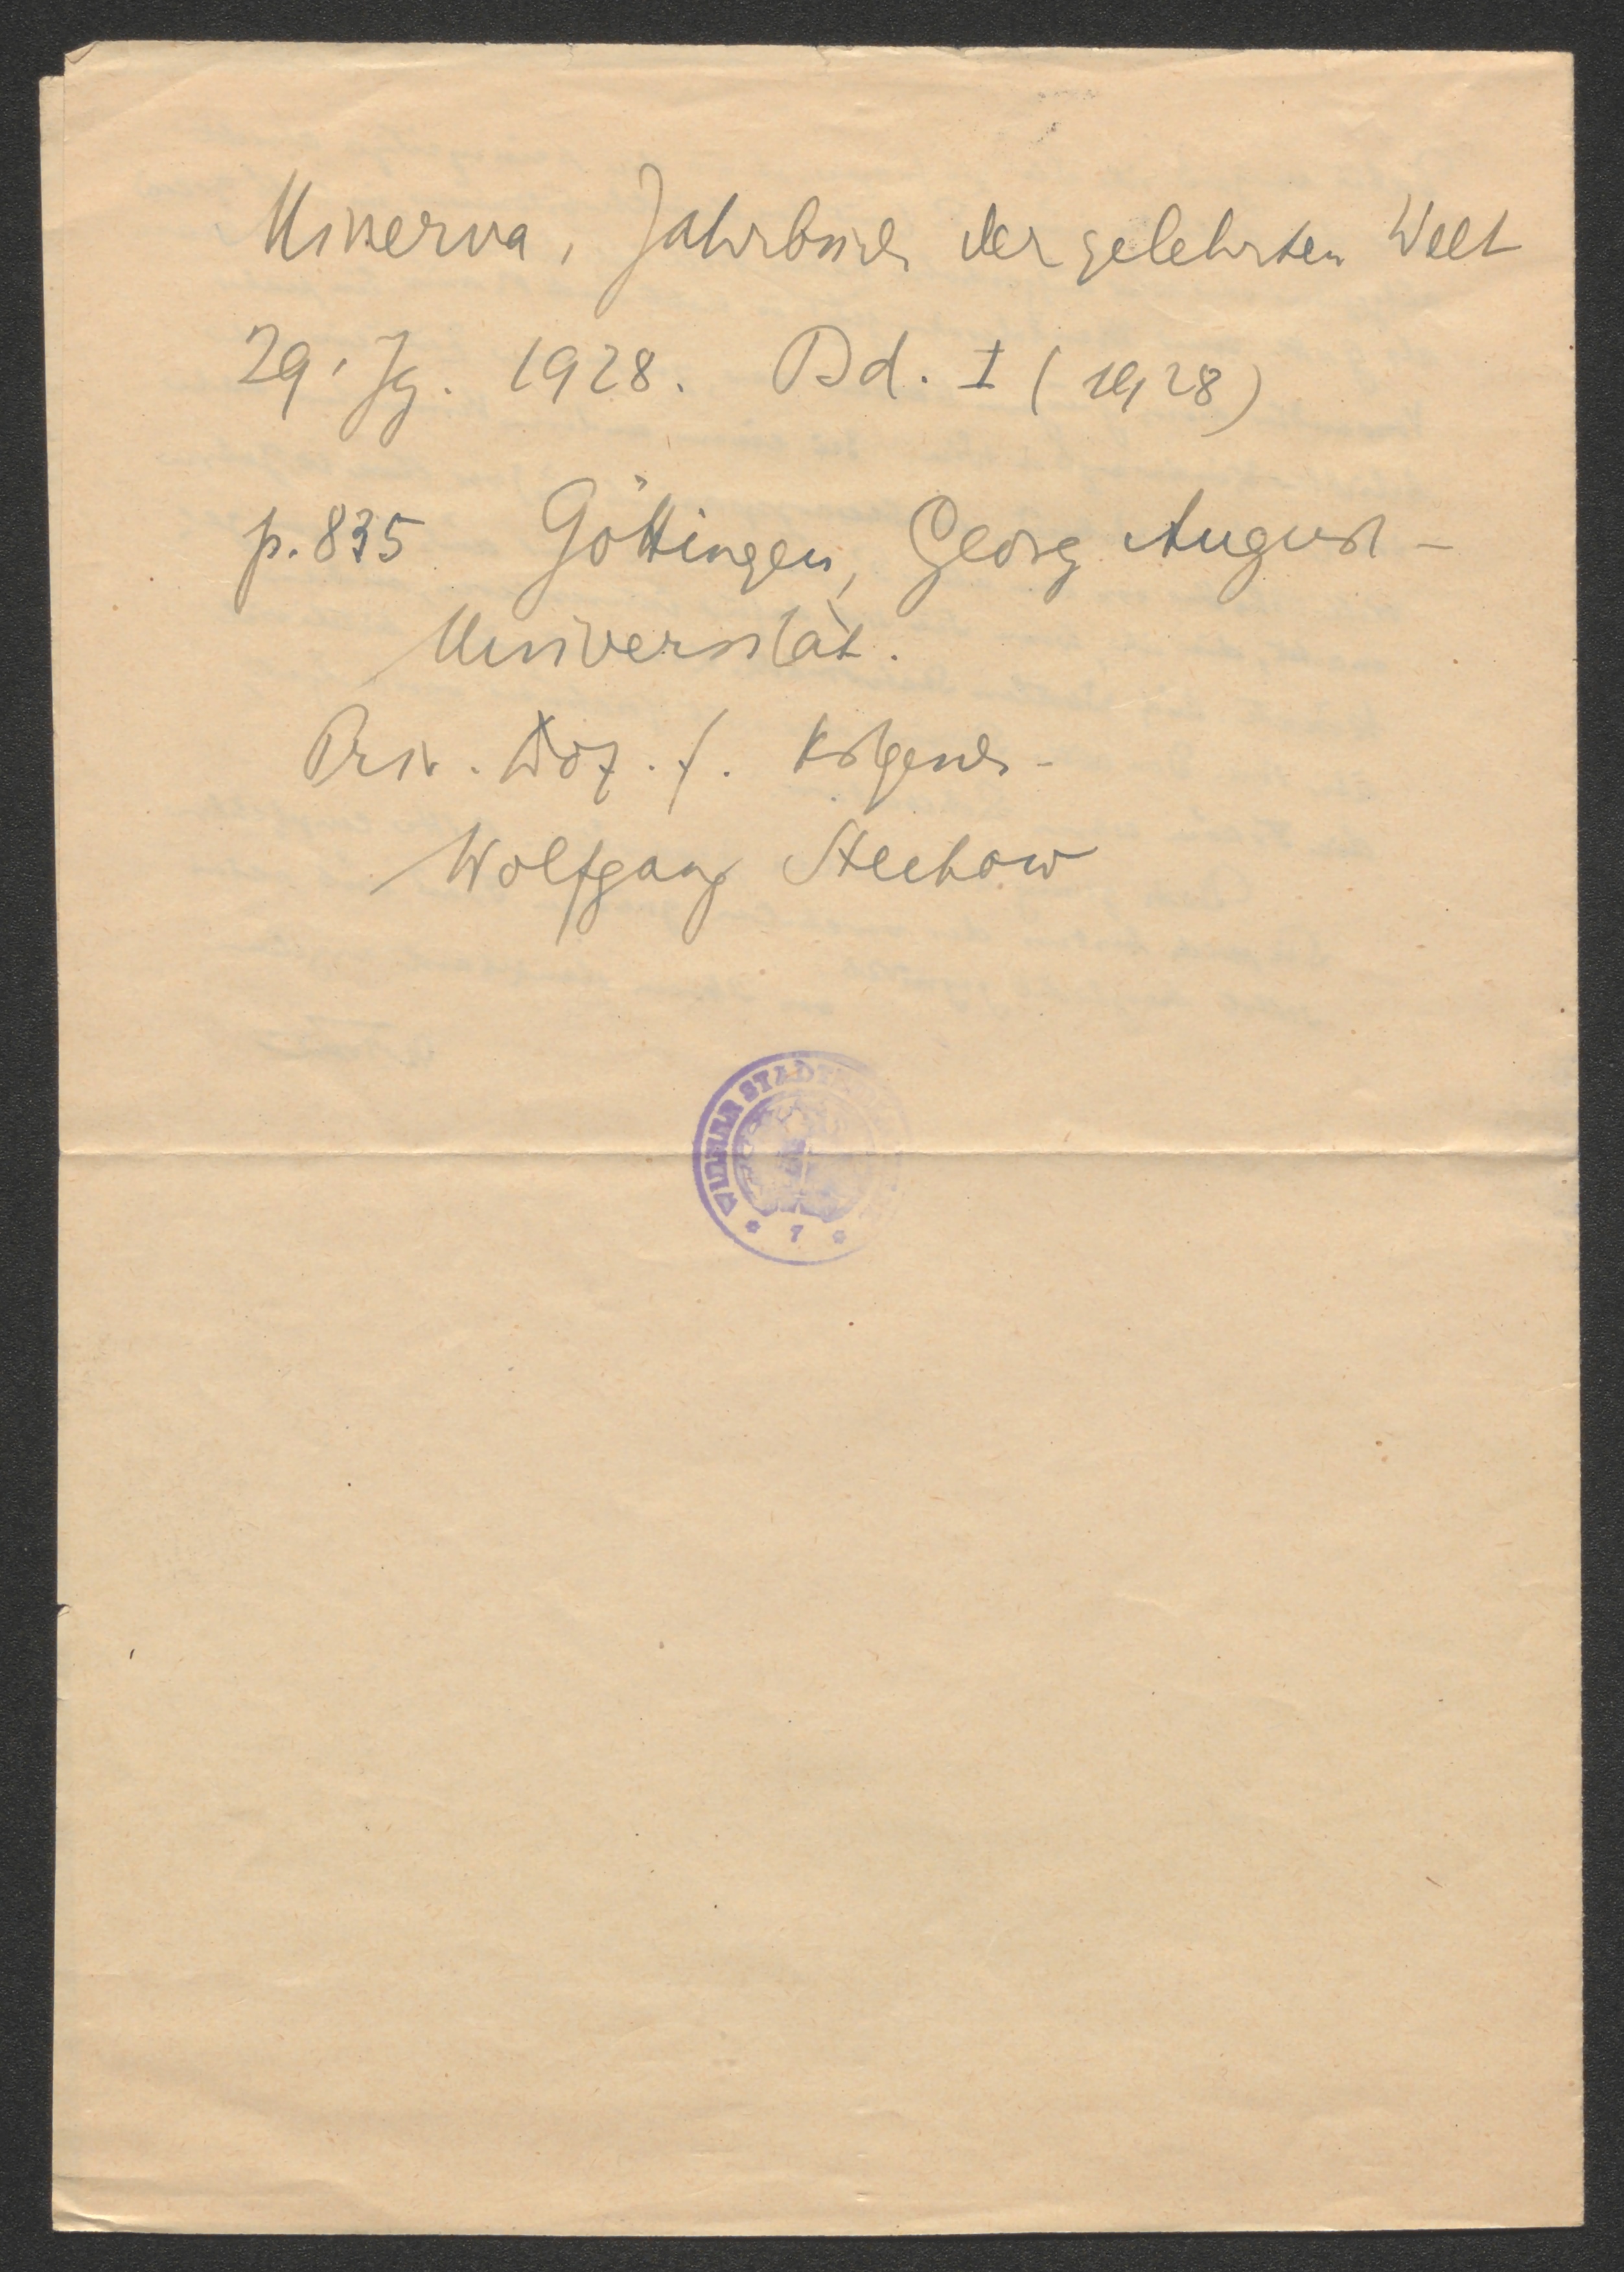 Minerva, Jahrbuch der gelehrten Welt
29. Jg. 1928. Bd. I (1928)
p. 835 Göttingen, Georg August-
Universität.
Priv. Doz. f.
Wolfgang Stechow
WIENER STADT
* 7 *